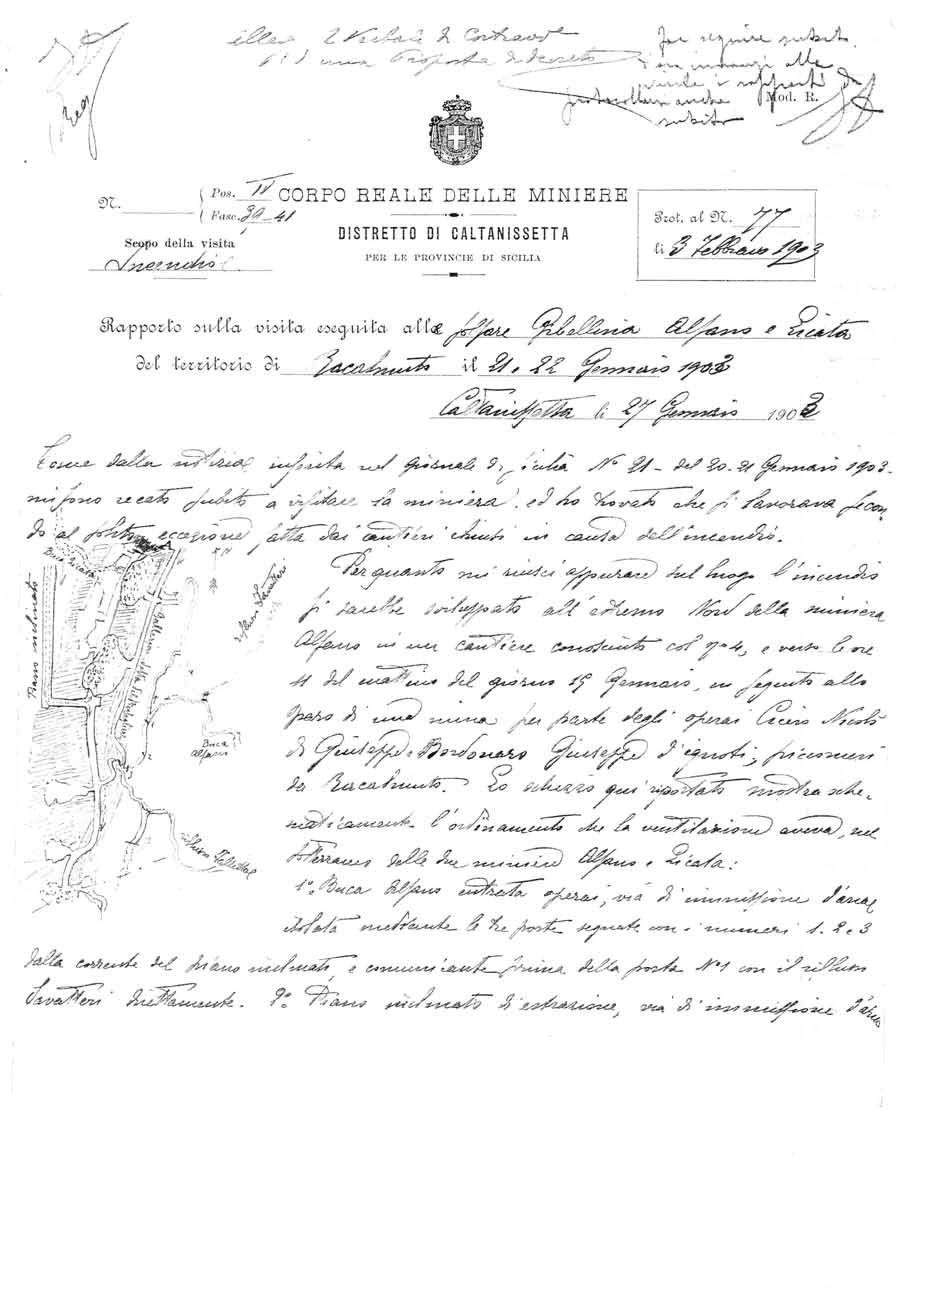 2 Verbale di
una Proposta di decreto
Far eseguire subito
innanzi alla
i rapporti da
protocollarsi anche
subito
Mod. R.
N.
Pos. IV
Fasc. 39-41
CORPO REALE DELLE MINIERE
DISTRETTO DI CALTANISSETTA
PER LE PROVINCIE DI SICILIA
Prot. al N. 77
li 3 Febbraio 1903
Scopo della visita
Incendio
Rapporto sulla visita eseguita alle solfare Gibellina Alfano e Licata
del territorio di Racalmuto il 21 e 22 Gennaio 1903
Caltanissetta li 27 Gennaio 1903
Come dalla notizia inserita nel giornale di Sicilia Nº 21 - del 20-21 Gennaio 1903.
mi sono recato subito a visitare la miniera, ed ho trovato che si lavorava secon
do al solito eccezione fatta dai cantieri chiusi in causa dell'incendio.
Buca Licata
Piano inclinato
Galleria della
riflusso Savatteri
Buca
Alfano
riflusso
Per quanto mi riuscì appurare sul luogo l'incendio
si sarebbe sviluppato all'estremo Nord della miniera
Alfano in un cantiere conosciuto col nº 4, e verso le ore
11 del mattino del giorno 15 Gennaio, in seguito allo
sparo di una mina per parte degli operai Cicero Nicolò
di Giuseppe e Bordonaro Giuseppe d'ignoti, picconieri
da Racalmuto. Lo schizzo qui riportato mostra sche-
maticamente l'ordinamento che la ventilazione aveva, nel
sotterraneo delle due miniere Alfano e Licata:
1º. Buca Alfano entrata operai, via di immissione d'aria
isolata mediante le tre porte segnate con i numeri 1. 2 e 3
dalla corrente del piano inclinato e comunicante prima della porta Nº 1 con il riflusso
Savatteri direttamente. 2º Piano inclinato di estrazione, via di immissione d'aria